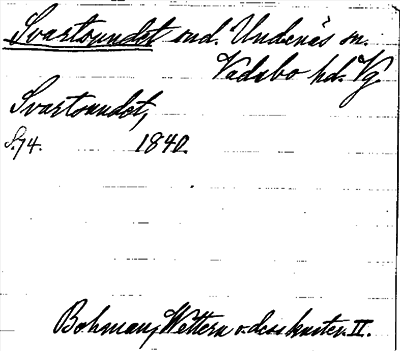 Svartsundet snd. Undenäs sn.
Vadsbo hd. Vg
Svartsundet,
S. 74. 1840.
Bohman, Wettern o. dess kuster. II.